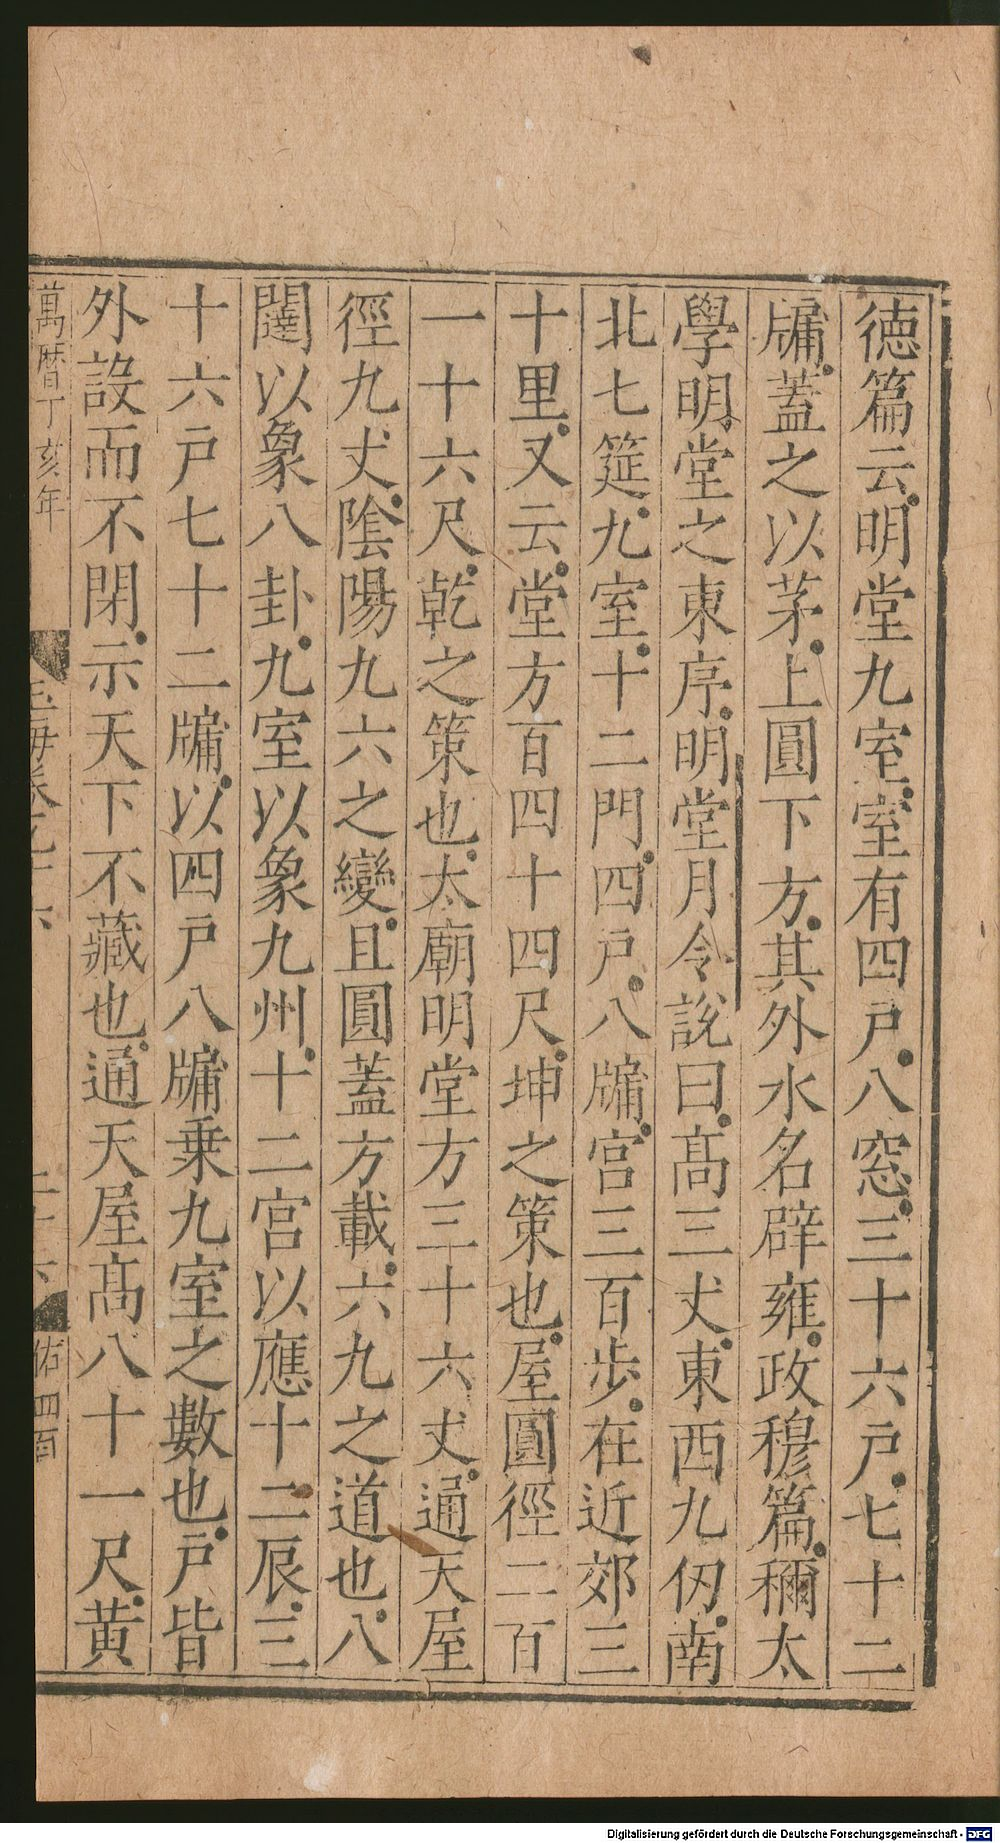 徳篇云明堂九室室有四戸八窓三十六戸七十二
牖蓋之以茅上圓下方其外水名辟雍政穆篇稱太
學明堂之東序明堂月令說曰髙三丈東西九仞南
北七筵九室十二門四戸八牖宫三百步在近郊三
十里又云堂方百四十四尺坤之策也屋圓徑二百
一十六尺乾之策也太廟明堂方三十六丈通天屋
徑九丈陰陽九六之變且圓蓋方載六九之道也八
闥以象八卦九室以象九州十二宫以應十二辰三
十六戸七十二牖以四戸八牖乗九室之數也戸皆
外設而不閉示天下不藏也通天屋髙八十一尺黄
萬曆丁亥年
玉海卷九十六
二十六
佑四百
Digitalisierung gefördert durch die Deutsche Forschungsgemeinschaft - DFG